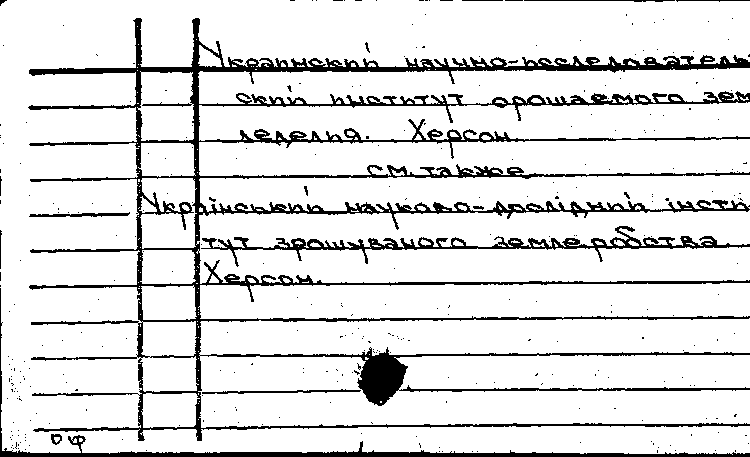 Украинский научно-исследователь
ский институт орошаемого зем
леделия. Херсон.
см. также
Український науково-дослідний інсти
тут зрошуваного землеробства
Херсон.
оф